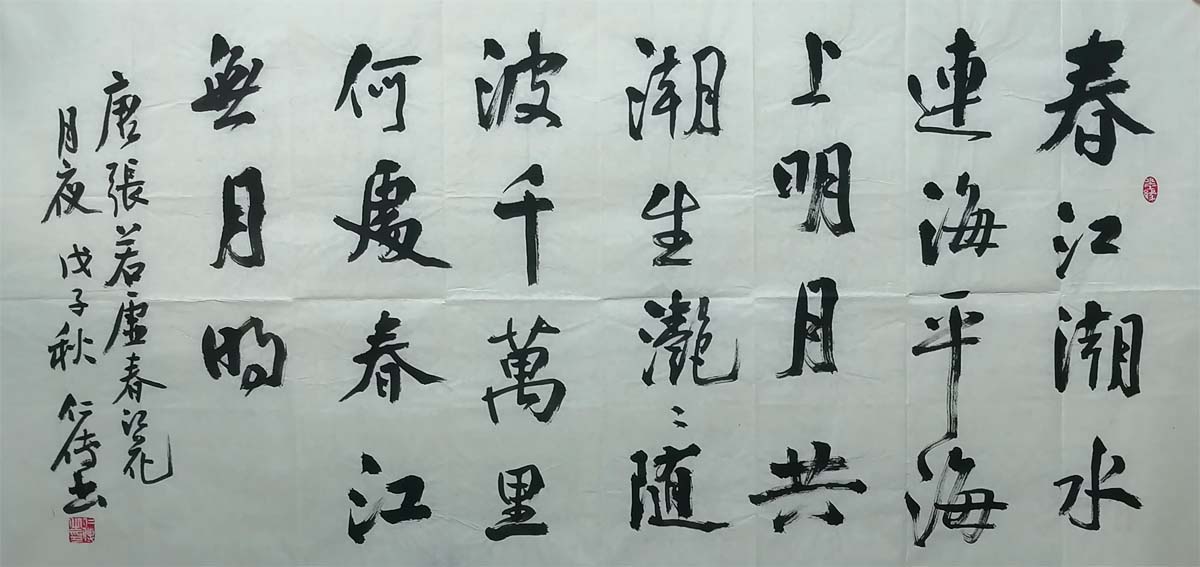 春江潮水
連海平海
上明月共
潮生灧〻随
波千萬里
何處春江
無月明
唐張若虛春江花
月夜 戊子秋 仁书